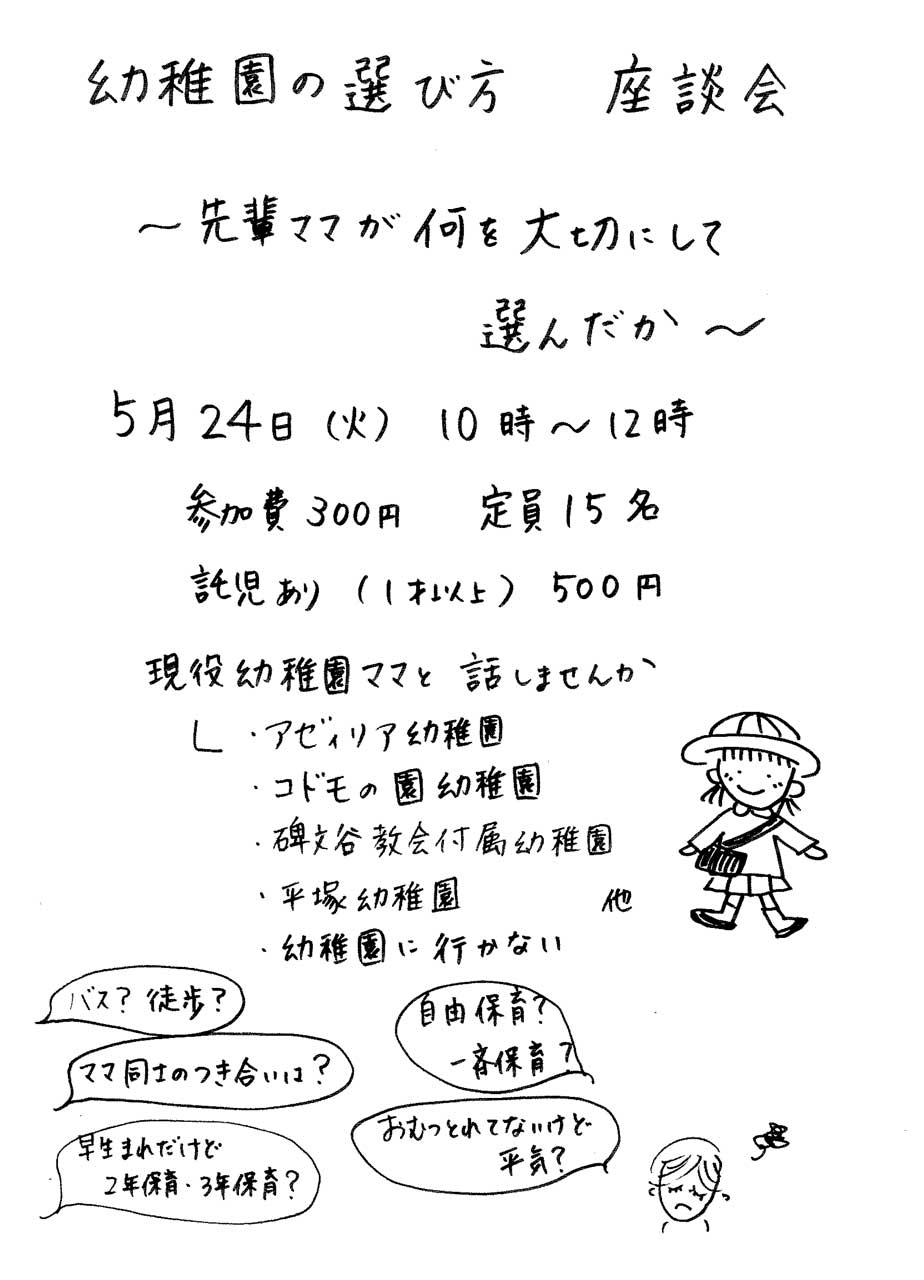 幼稚園の選び方 座談会
～先輩ママが何を大切にして
選んだか～
5月24日（火） 10時～12時
参加費300円 定員15名
託児あり（1才以上） 500円
現役幼稚園ママと話しませんか
・アゼィリア幼稚園
・コドモの園幼稚園
・碑文谷教会付属幼稚園
・平塚幼稚園 他
・幼稚園に行かない
バス？徒歩？
ママ同士のつき合いは？
早生まれだけど
2年保育・3年保育？
自由保育？
一斉保育？
おむつとれてないけど
平気？